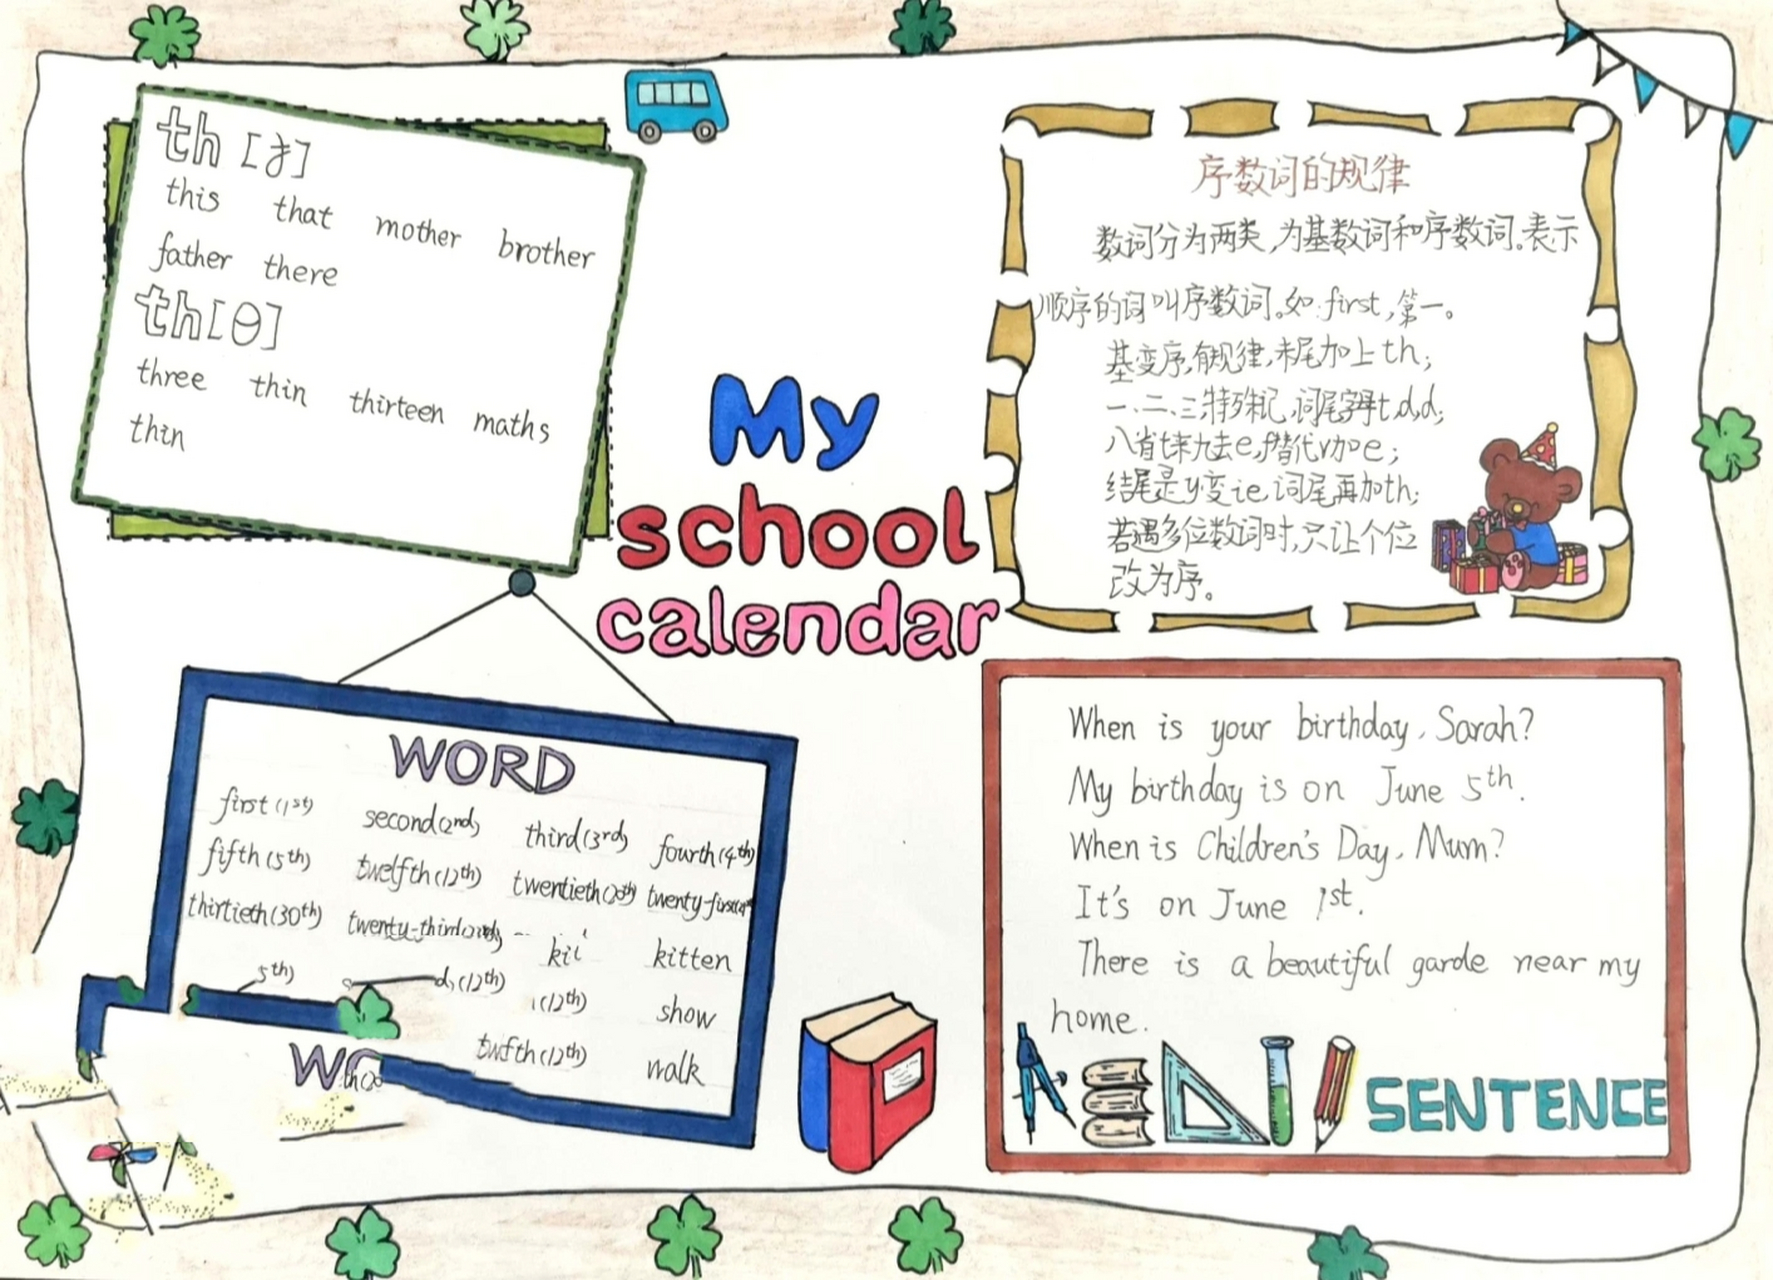 th [ð]
this that mother brother
father there
th[θ]
three thin thirteen maths
thin
My
school
calendar
序数词的规律
数词分为两类,为基数词和序数词。表示
顺序的词叫序数词。如:first,第一。
基变序,有规律,末尾加上th;
一、二、三,特殊记,词尾字母t,d,d;
八省t来九去e,f替代v加e;
结尾是y变ie,词尾再加th;
若遇多位数词时,只让个位
改为序。
WORD
first(1st) second(2nd) third(3rd) fourth(4th)
fifth(5th) twelfth(12th) twentieth(20th) twenty-first
thirtieth(30th) twenty-third kitten
5th) (12th) (12th) show
twfth(12th) walk
When is your birthday, Sarah?
My birthday is on June 5th.
When is Children's Day, Mum?
It's on June 1st.
There is a beautiful garde near my
home.
SENTENCE